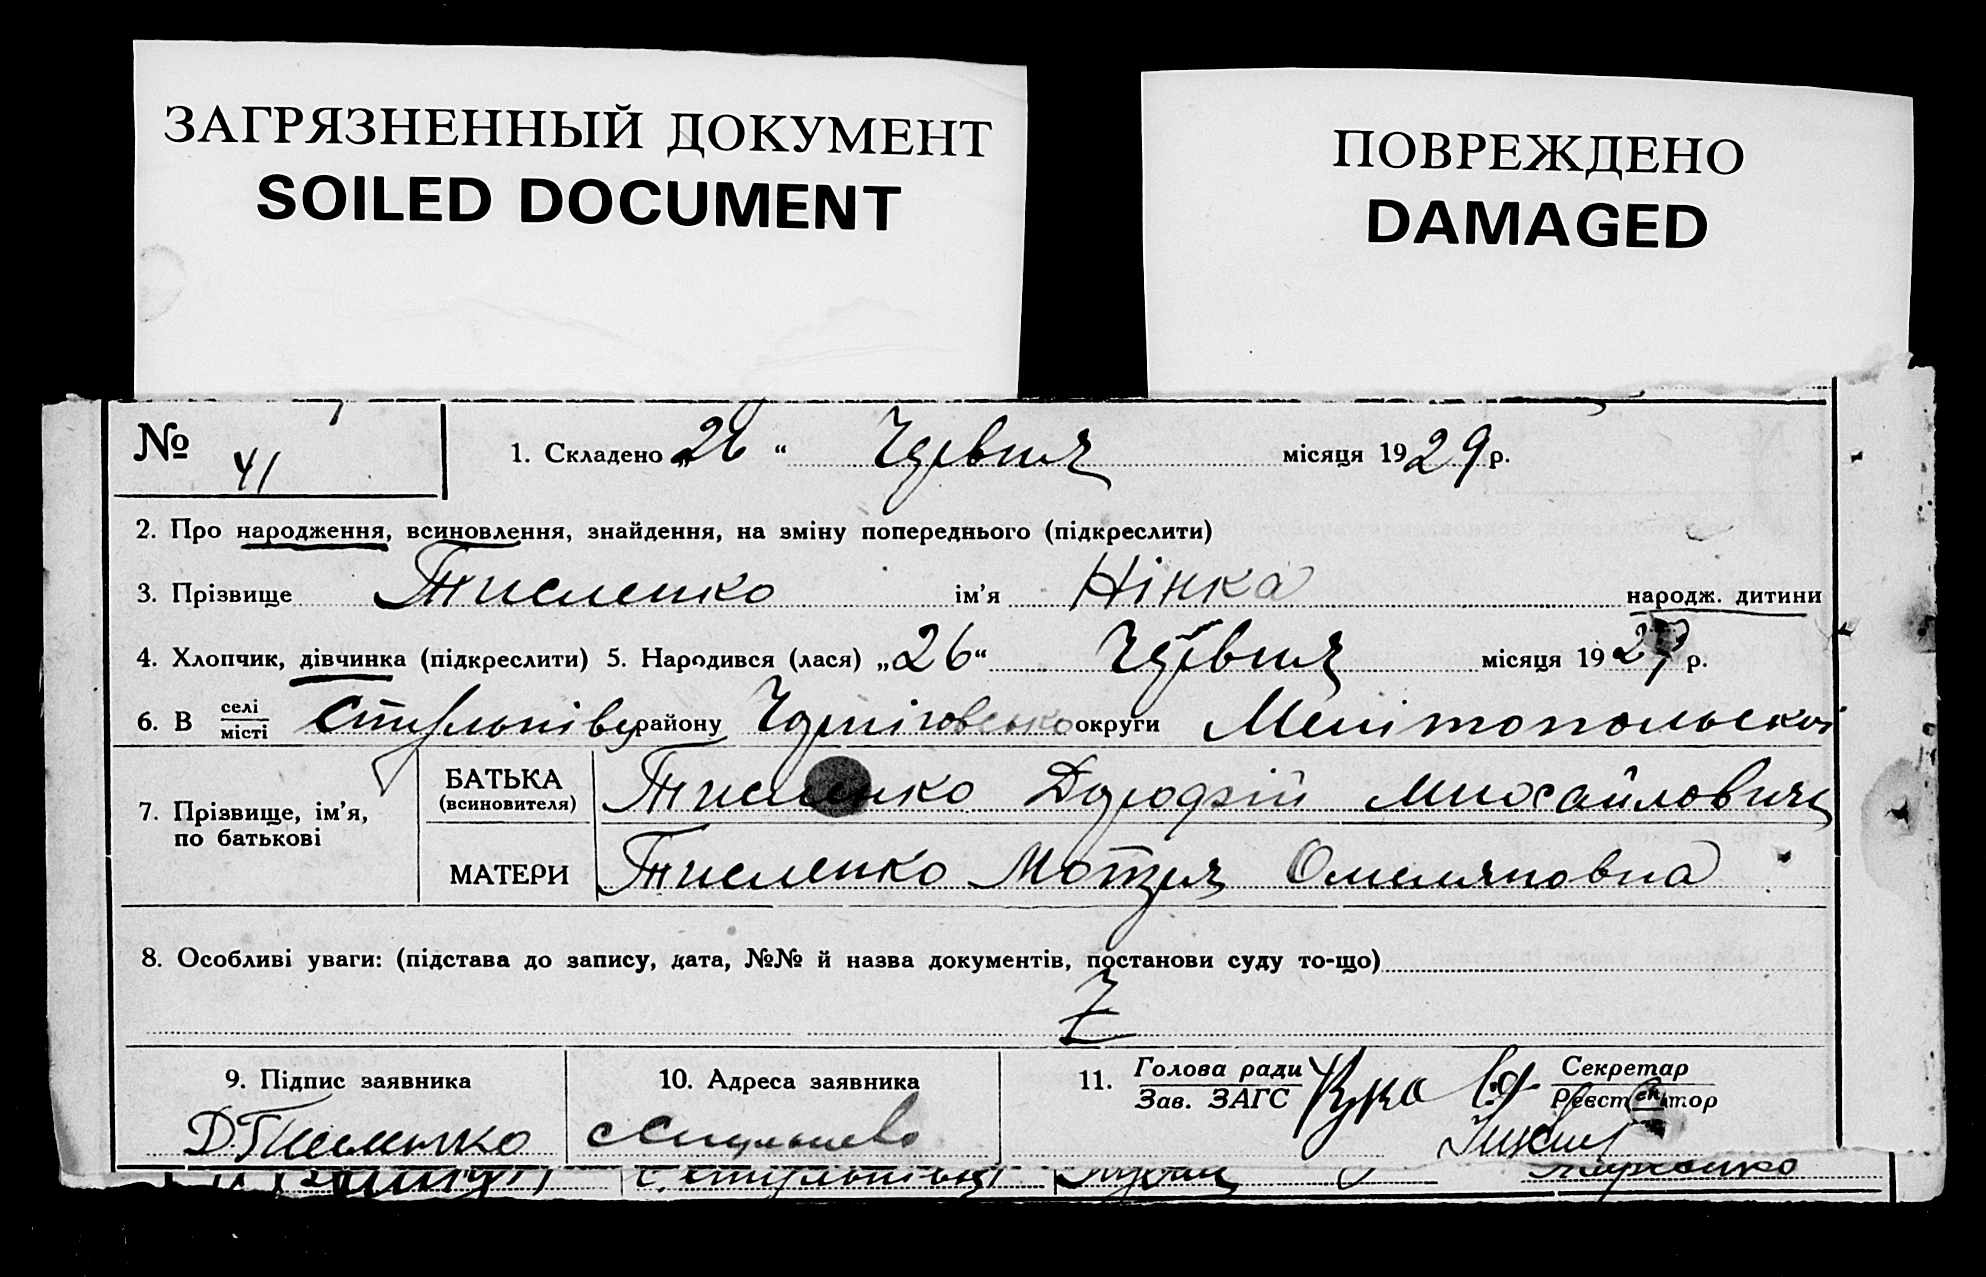 ЗАГРЯЗНЕННЫЙ ДОКУМЕНТ
SOILED DOCUMENT
ПОВРЕЖДЕНО
DAMAGED
№ 41
1. Складено „26“ Червня місяця 1929 р.
2. Про народження, всиновлення, знайдення, на зміну попереднього (підкреслити)
3. Прізвище Тисленко ім’я Нінка народж. дитини
4. Хлопчик, дівчинка (підкреслити) 5. Народився (лася) „26“ Червня місяця 1929 р.
6. В селі місті району округи Мелітопольської
7. Прізвище, ім’я, по батькові
БАТЬКА (всиновителя) Тисленко Дорофій Михайлович
МАТЕРИ Тисленко Мотря Омеляновна
8. Особливі уваги: (підстава до запису, дата, №№ й назва документів, постанови суду то-що)
9. Підпис заявника
10. Адреса заявника
11. Голова ради Зав. ЗАГС
Секретар Реєстратор
Д. Тисленко